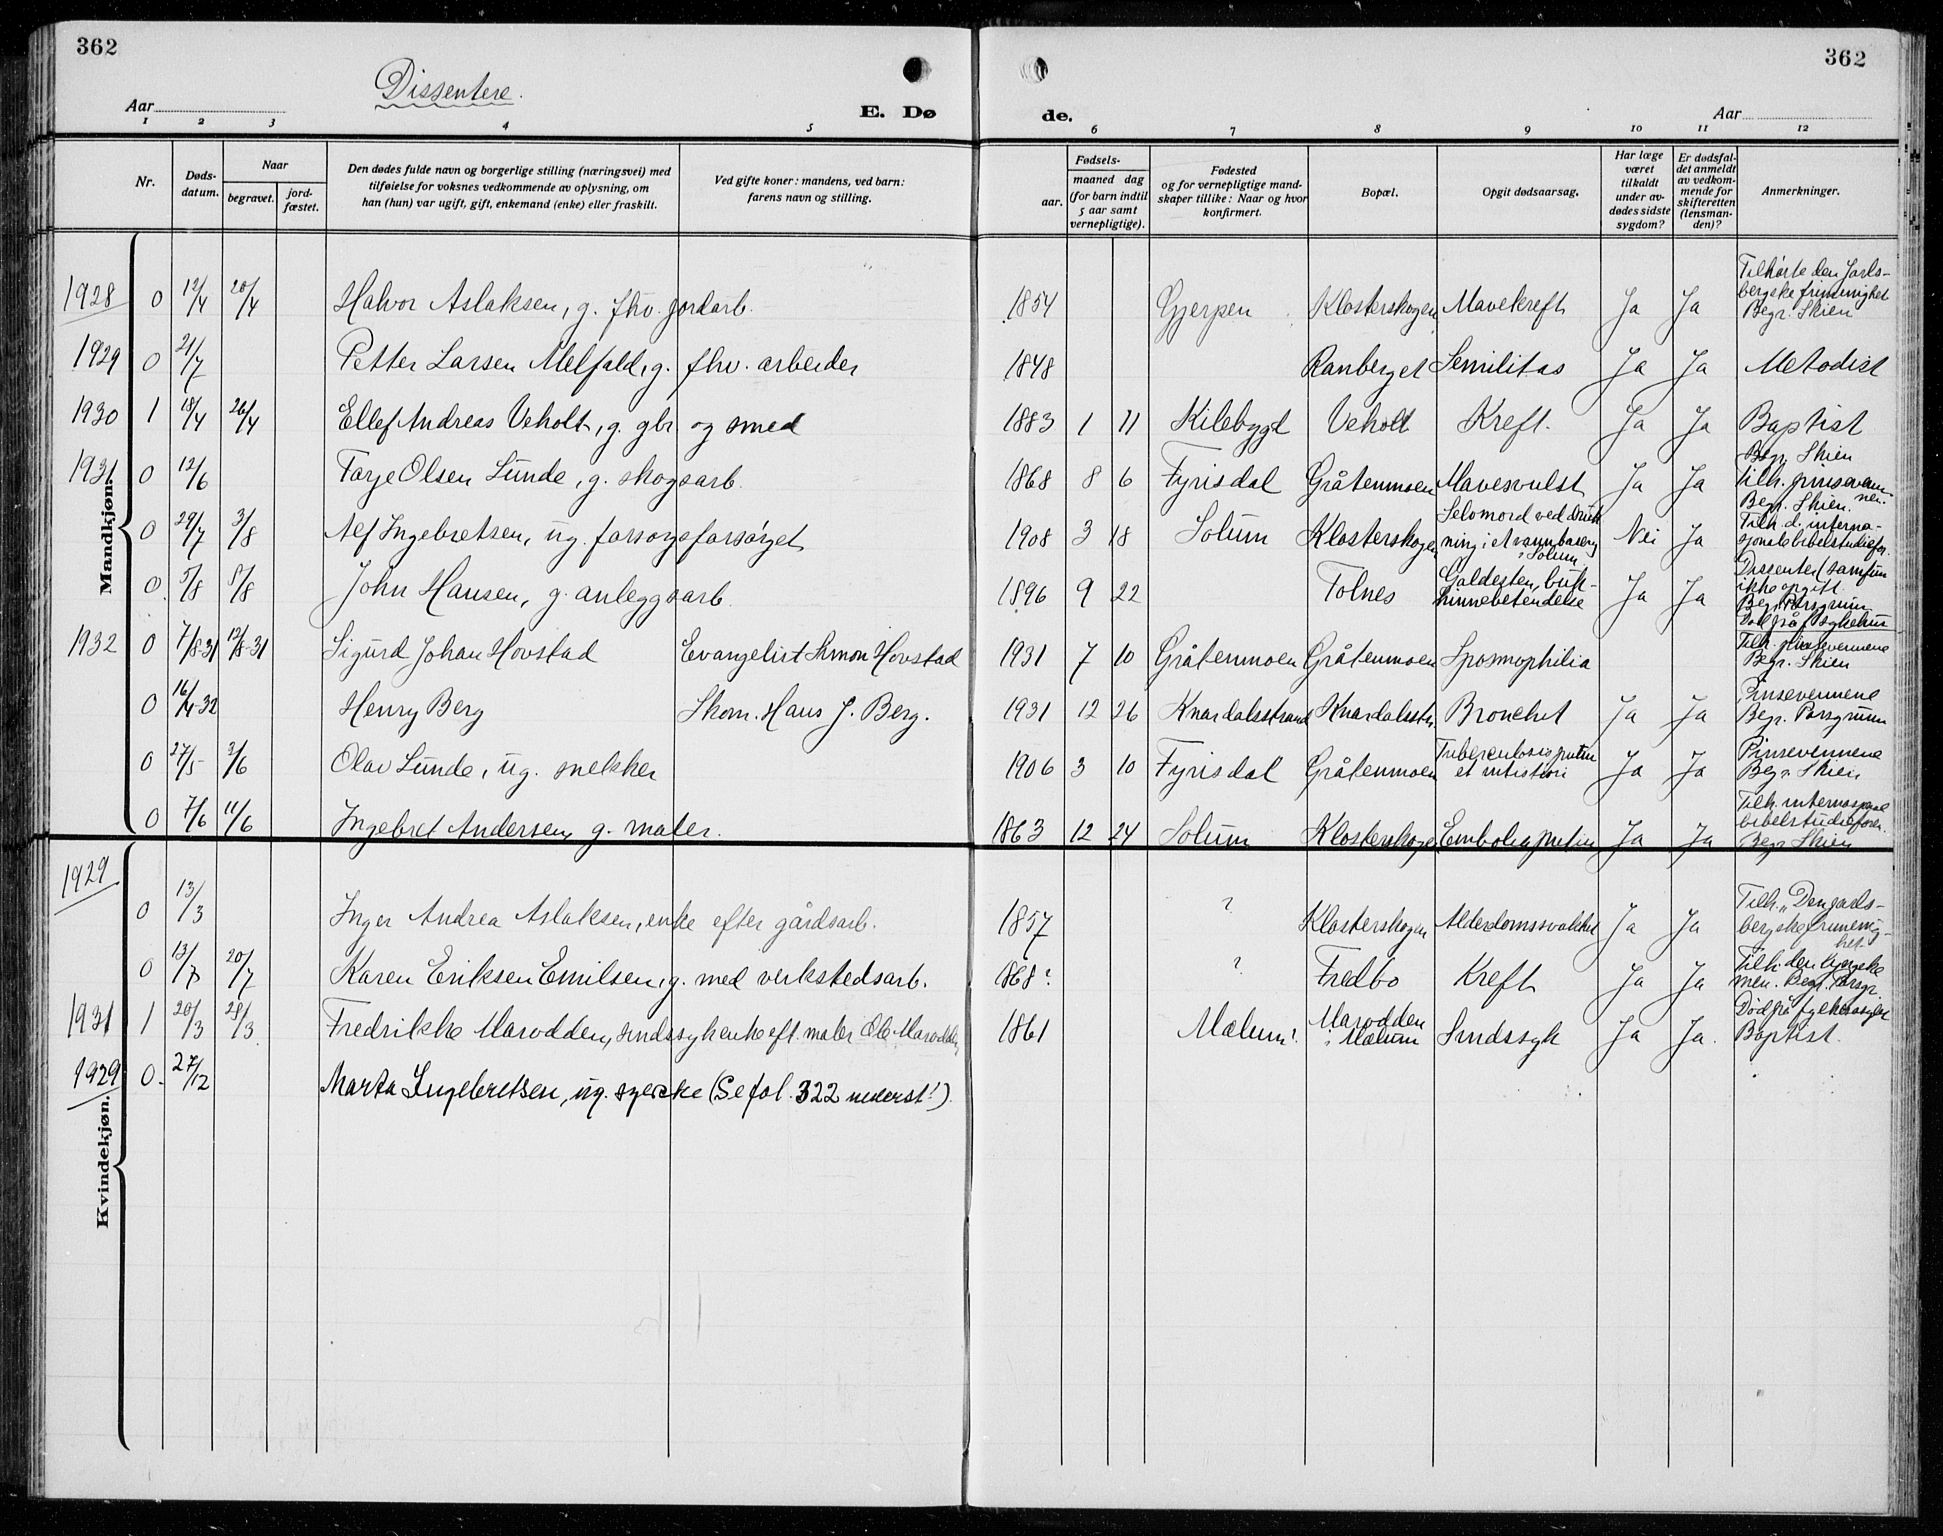 362
362
Dissentere.
Aar
E. Dø
de.
Aar
1 2 3 4 5 6 7 8 9 10 11 12
Nr.
Døds-
datum.
Naar
begravet.
jord-
fæstet.
Den dødes fulde navn og borgerlige stilling (næringsvei) med
tilføielse for voksnes vedkommende av oplysning, om
han (hun) var ugift, gift, enkemand (enke) eller fraskilt.
Ved gifte koner: mandens, ved barn:
farens navn og stilling.
aar.
Fødsels-
maaned dag
(for barn indtil
5 aar samt
vernepligtige).
Fødested
og for vernepligtige mand-
skaper tillike: Naar og hvor
konfirmert.
Bopæl.
Opgit dødsaarsag.
Har læge
været
tilkaldt
under av-
dødes sidste
sygdom?
Er dødsfal-
det anmeldt
av vedkom-
mende for
skifteretten
(lensman-
den)?
Anmerkninger.
Mandkjøn.
1928 0 12/4 20/4 Halvor Aslaksen, g. fhv. jordarb. 1854 Gjerpen Klosterskogen Mavekreft Ja Ja
Tilhørte den Jarls-
bergske frimenighet
Begr. Skien
1929 0 21/7 Petter Larsen Melfald, g. fhv. arbeider 1848 Ranberget Semilitas Ja Ja Metodist
1930 1 18/4 26/4 Ellef Andreas Veholt, g. gbr og smed 1883 1 11 Kilebygd Veholt Kreft. Ja Ja Baptist
1931 0 12/6 Tarje Olsen Lunde, g. skogsarb. 1868 8 6 Fyrisdal Gråtenmoen Mavesvulst Ja Ja
Begr. Skien
Tilh. pinseven-
nen.
Begr. Skien.
0 29/7 3/8 Alf Ingebretsen, ug. forsorgsforsørget 1908 3 18 Solum Klosterskogen
Selvmord ved druk
ning i
i Solum
Nei Ja
Tilh. d. interna-
sjonale bibelstudiefor.
0 5/8 8/8 John Hansen, g. anleggsarb. 1896 9 22 Tolnes
Galdesten, buk-
hinnebetendelse
Ja Ja
Dissenter (samfun
ikke opgitt.
Begr. Porsgrunn
Død på sykehus
1932 0 7/8-31 12/8-31 Sigurd Johan Hovstad Evangelist Simon Hovstad 1931 7 10 Gråtenmoen Gråtenmoen Spasmophilia
Tilh. pinsevennene
Begr. Skien
0 16/4-32 Henry Berg Skom. Hans J. Berg. 1931 12 26 Knardalsstrand Knardalsstr. Bronchit Ja Ja
Pinsevennene
Begr. Porsgrunn
0 27/5 3/6 Olav Lunde, ug. snekker 1906 3 10 Fyrisdal Gråtenmoen
Tuberculosis pulm
et intestini
Ja Ja
Pinsevennene
Begr. Skien
0 7/6 11/6 Ingebret Andersen, g. maler. 1863 12 24 Solum Klosterskogen Embolia pulm Ja Ja
Tilh. internasjonal
bibelstudiefore.
Begr. Skien
Kvindekjøn.
1929
0 13/3 Inger Andrea Aslaksen, enke efter gårdsarb. 1857 ? Klosterskogen Alderdomssvakhet Ja Ja
Tilh. „Den jarls-
bergske frimenig-
het
0 13/7 20/7 Karen Eriksen Emilsen, g. med verkstedsarb. 1868? ? Fredbo Kreft Ja Ja
Tilh. den
men. Begr. Porsgr
1931 1 20/3 28/3 Fredrikke Marodden, sindssyk enke eft. maler Ole Marodden 1861 Mælum?
Marodden
i Mælum
Sindssyk Ja Ja.
Død på
Baptist.
1929 0. 27/12 Marta Ingebretsen, ug. syerske (Se fol. 322 nederst!).